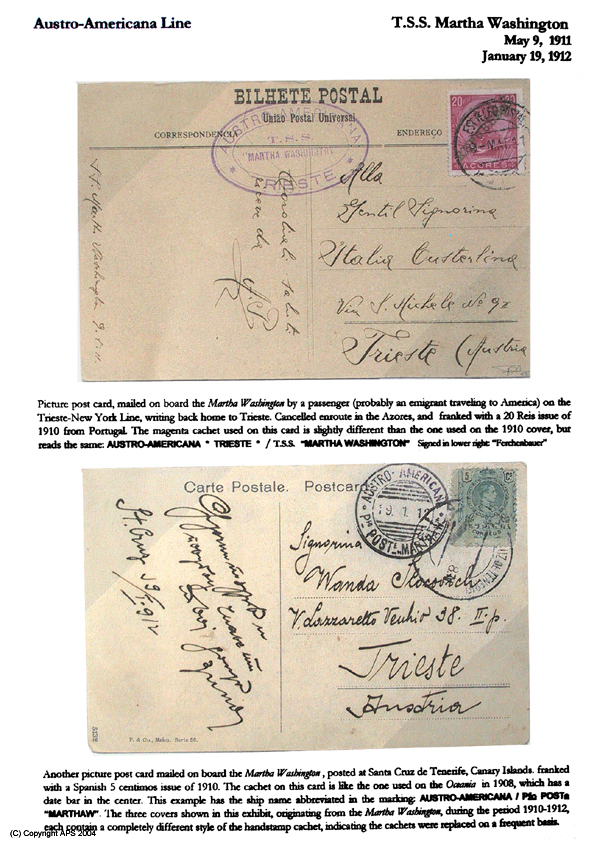 Austro-Americana Line
T.S.S. Martha Washington
May 9, 1911
January 19, 1912
BILHETE POSTAL
União Postal Universal
CORRESPONDENCIA
ENDEREÇO
AUSTRO-AMERICANA
T.S.S.
"MARTHA WASHINGTON"
TRIESTE
20
20
AÇORES
Cordiali saluti
A.P.
Martha Washington
Alla
Gentil Signorina
Italia Custerlina
Via S. Michele No
Trieste (Austria
Picture post card, mailed on board the Martha Washington by a passenger (probably an emigrant traveling to America) on the
Trieste-New York Line, writing back home to Trieste. Cancelled enroute in the Azores, and franked with a 20 Reis issue of
1910 from Portugal. The magenta cachet used on this card is slightly different than the one used on the 1910 cover, but
reads the same: AUSTRO-AMERICANA * TRIESTE * / T.S.S. "MARTHA WASHINGTON" Signed in lower right: "Ferchenbauer"
Carte Postale. Postcard.
AUSTRO-AMERICANA
19.1.12
Pfo POSTa MARTHAW
Signorina
Wanda
V. Lazzaretto Vecchio 38. II p.
Trieste
Austria
St. Cruz 19/I 912
P. & Co., Serie 56.
Another picture post card mailed on board the Martha Washington, posted at Santa Cruz de Tenerife, Canary Islands. franked
with a Spanish 5 centimos issue of 1910. The cachet on this card is like the one used on the Oceania in 1908, which has a
date bar in the center. This example has the ship name abbreviated in the marking: AUSTRO-AMERICANA / Pfo POSTa
"MARTHAW". The three covers shown in this exhibit, originating from the Martha Washington, during the period 1910-1912,
each contain a completely different style of the handstamp cachet, indicating the cachets were replaced on a frequent basis.
(C) Copyright APS 2004